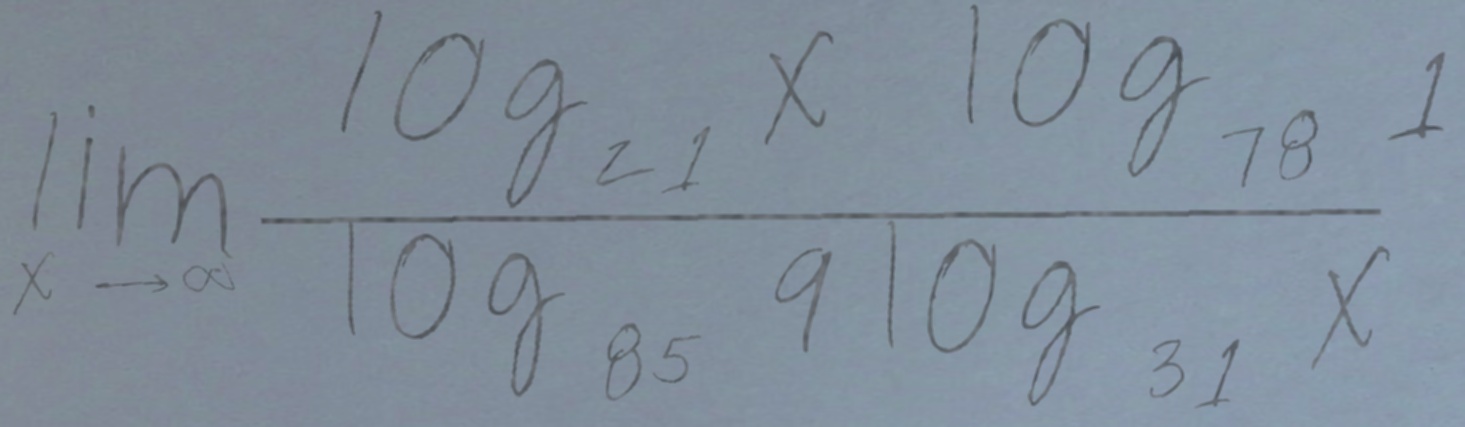 \lim_{x \to \infty} \frac{\log_{21} x \log_{78} 1}{\log_{85} 9 \log_{31} x}